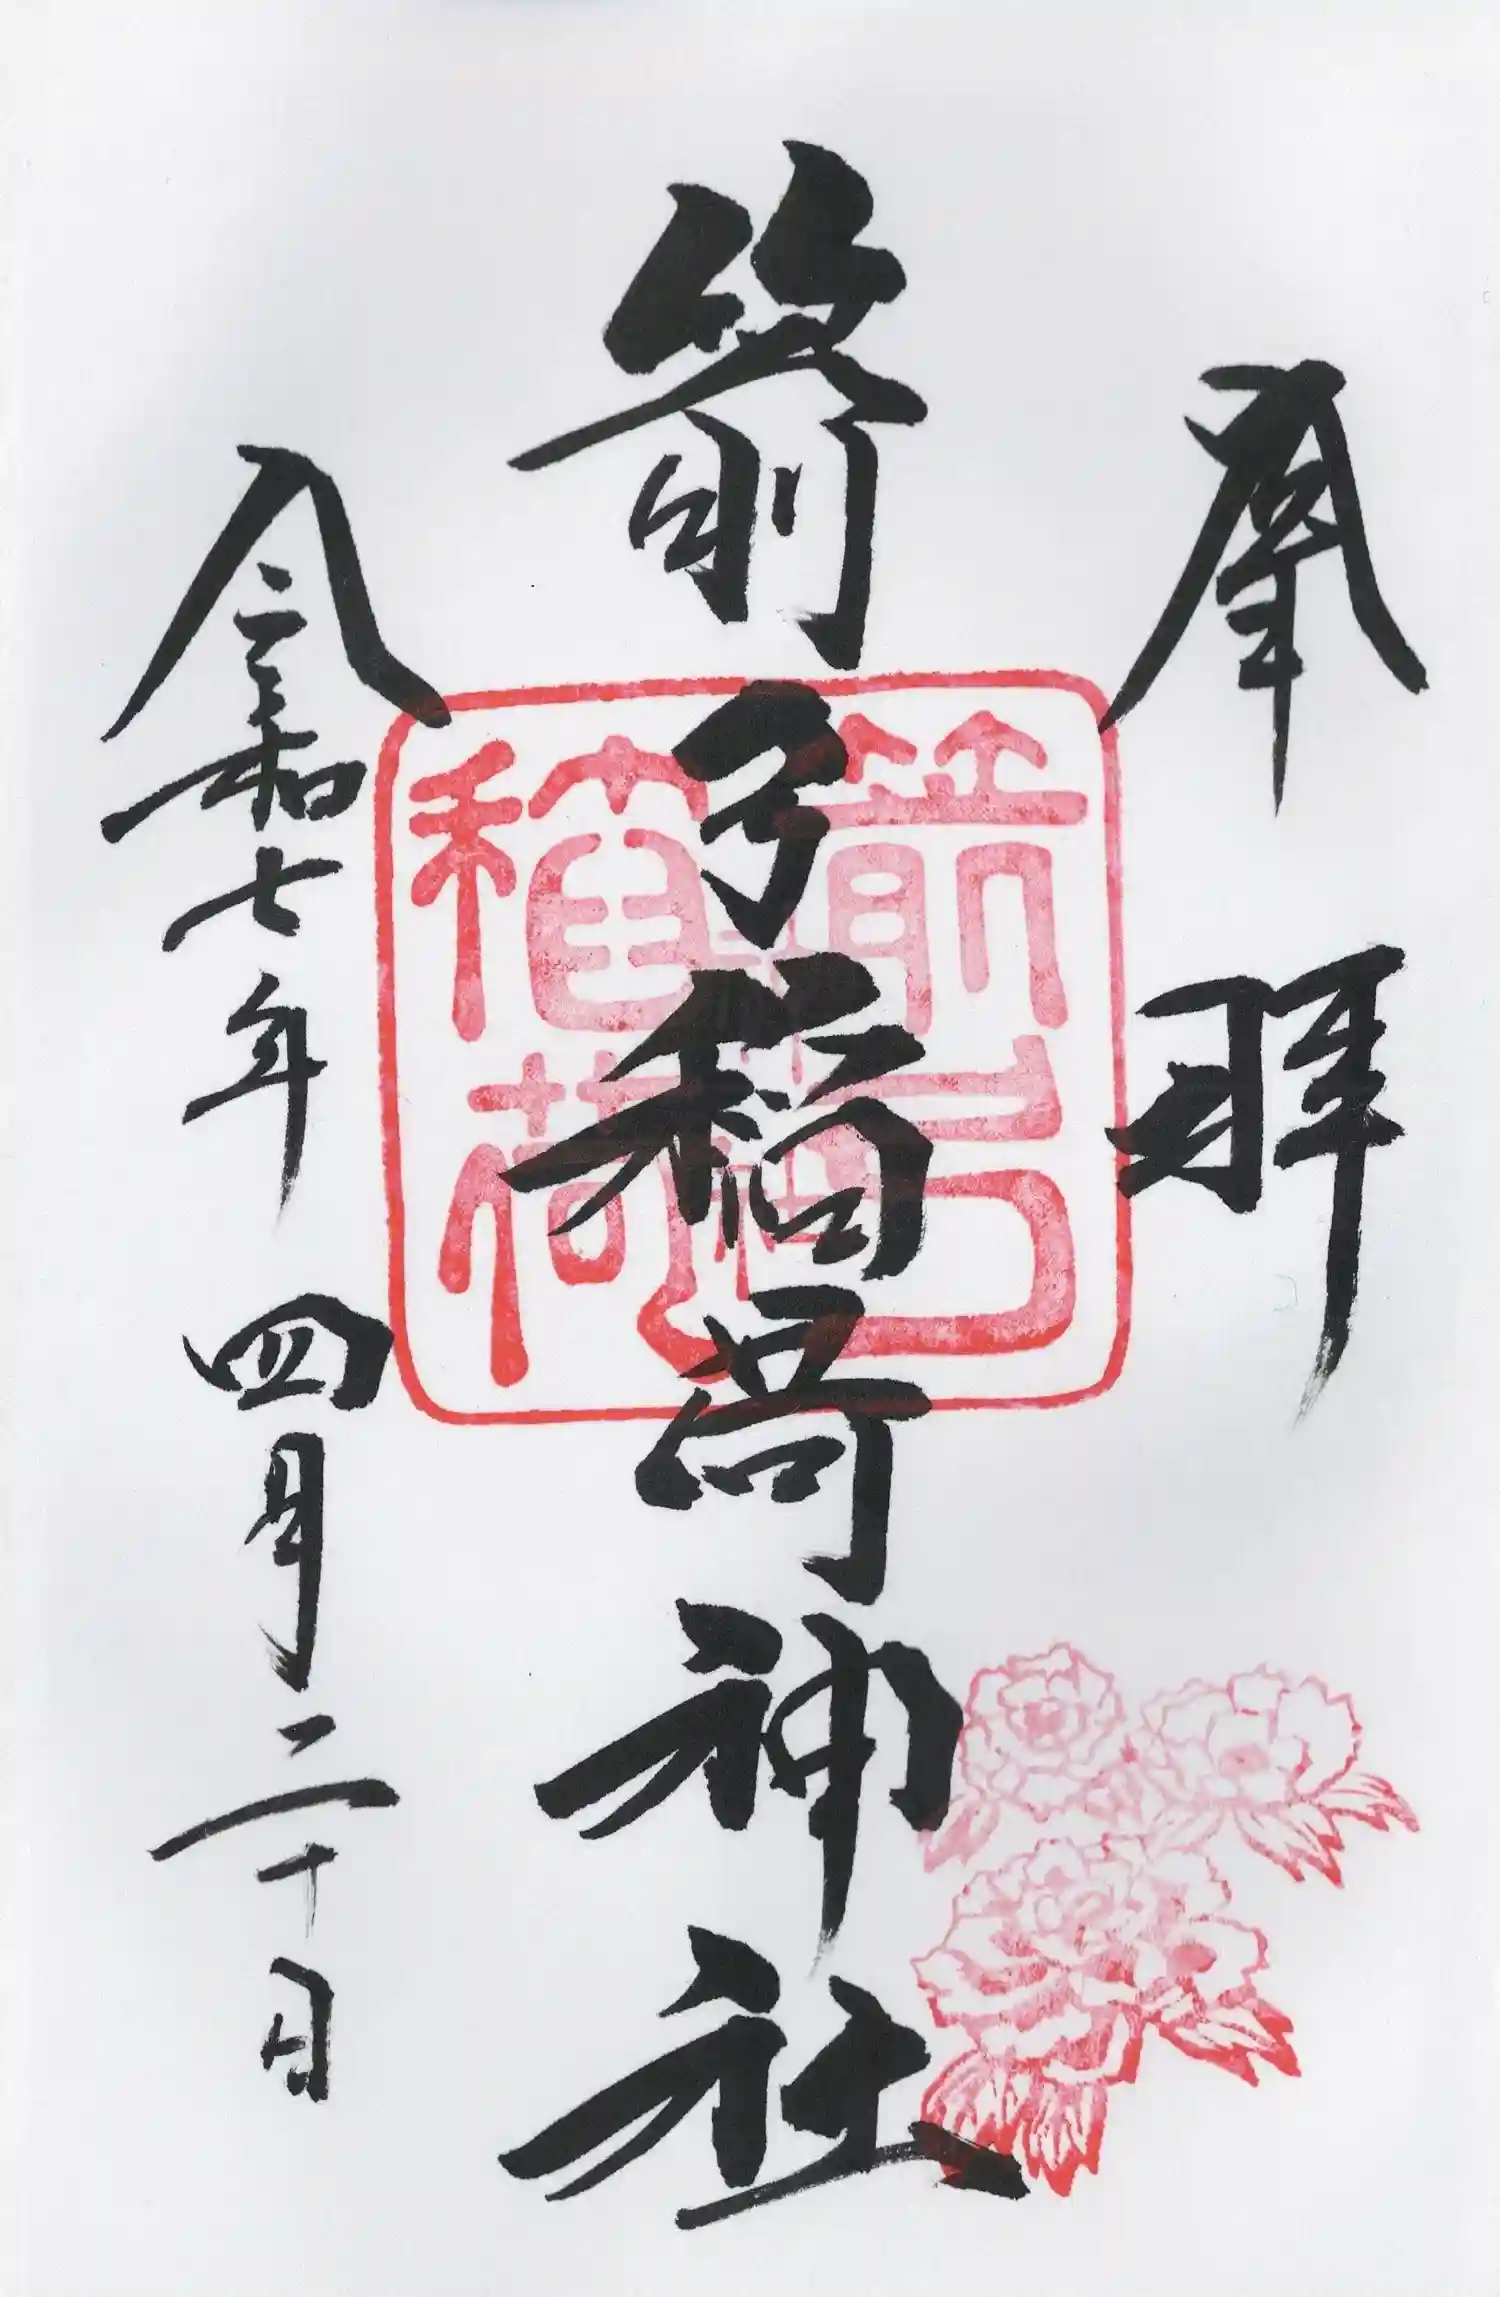 奉拝
箭弓稲荷神社
箭弓稲荷
令和七年四月二十日